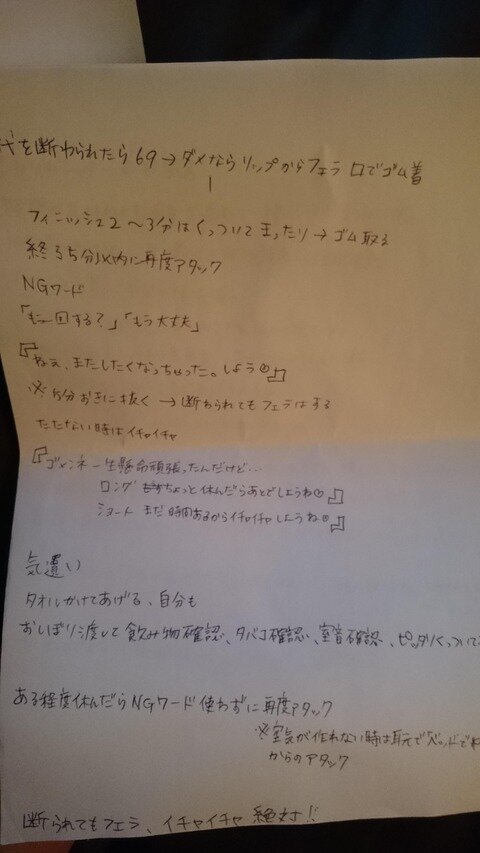 を断わられたら69→ダメならリップからフェラ 口でゴム着
フィニッシュ2〜3分はくっついてまったり→ゴム取る
終る5分以内に再度アタック
NGワード
「もう一回する?」「もう大丈夫」
『ねぇ、またしたくなっちゃった。しよう』
※5分おきに抜く→断わられてもフェラはする
たたない時はイチャイチャ
『ゴメンネ一生懸命頑張ったんだけど…
ロング ちょっと休んだらあとでしようね』
ショート まだ時間あるからイチャイチャしようね』
気遣い
タオルかけてあげる、自分も
おしぼり渡して飲み物確認、タバコ確認、室音確認、ピッタリくっついて
ある程度休んだらNGワード使わずに再度アタック
※空気が作れない時は耳元でベッドで
からのアタック
断られてもフェラ、イチャイチャ絶対!!